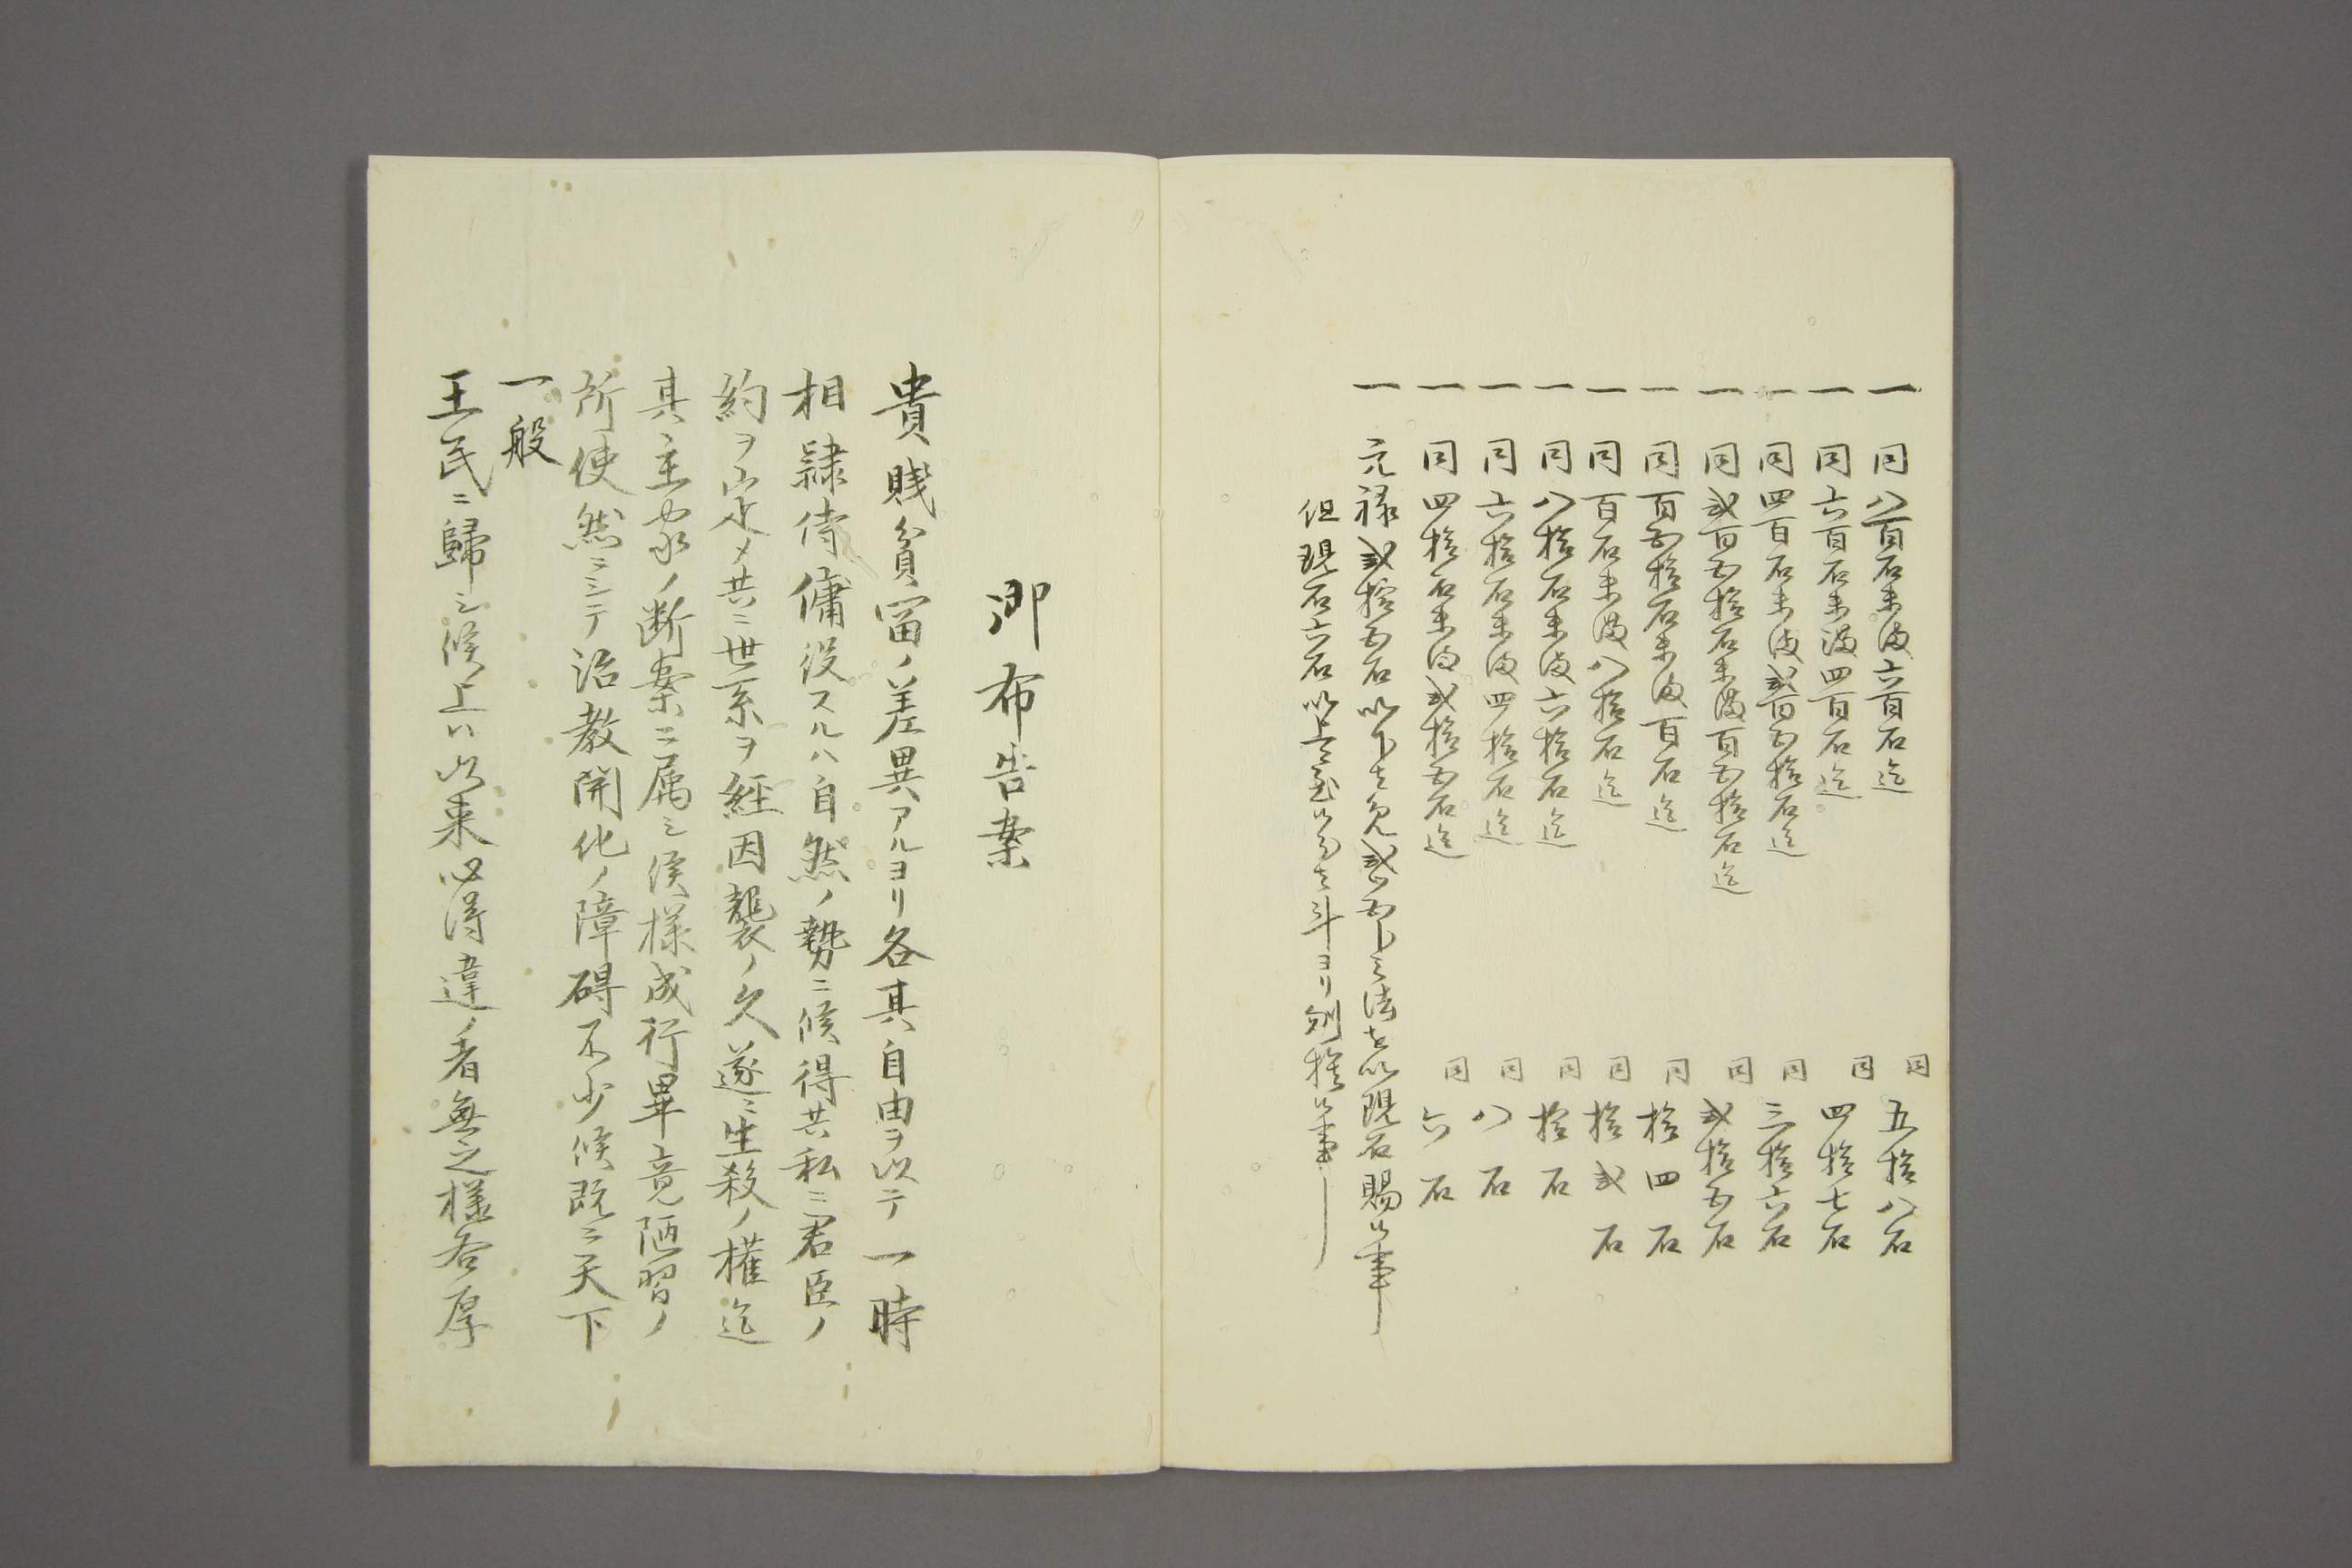 一 同八百石未満六百石迄 同五拾八石
一 同六百石未満四百石迄 同四拾七石
一 同四百石未満弐百五拾石迄 同三拾六石
一 同弐百五拾石未満百五拾石迄 同弐拾五石
一 同百五拾石未満百石迄 同拾四石
一 同百石未満八拾石迄 同拾弐石
一 同八拾石未満六拾石迄 同拾石
一 同六拾石未満四拾石迄 同八石
一 同四拾石未満弐拾五石迄 同六石
一 元禄弐拾五石以下ハ免弐ツ五下ヶ之法を以現石賜候事
但現石六石以上ニ至候分ハ斗ヨリ別捨候事
御布告案
貴賤貧富ノ差異アルヨリ各其自由ヲ以テ一時
相隷侍傭役スルハ自然ノ勢ニ候得共私ニ君臣ノ
約ヲ定メ共ニ世系ヲ経因襲ノ久遂ニ生殺ノ権迄
其主家ノ断案ニ属シ候様成行畢竟陋習ノ
所使然ニシテ治教開化ノ障碍不少候既ニ天下
一般
王民ニ歸シ候上ハ以来心得違ノ者無之様各厚